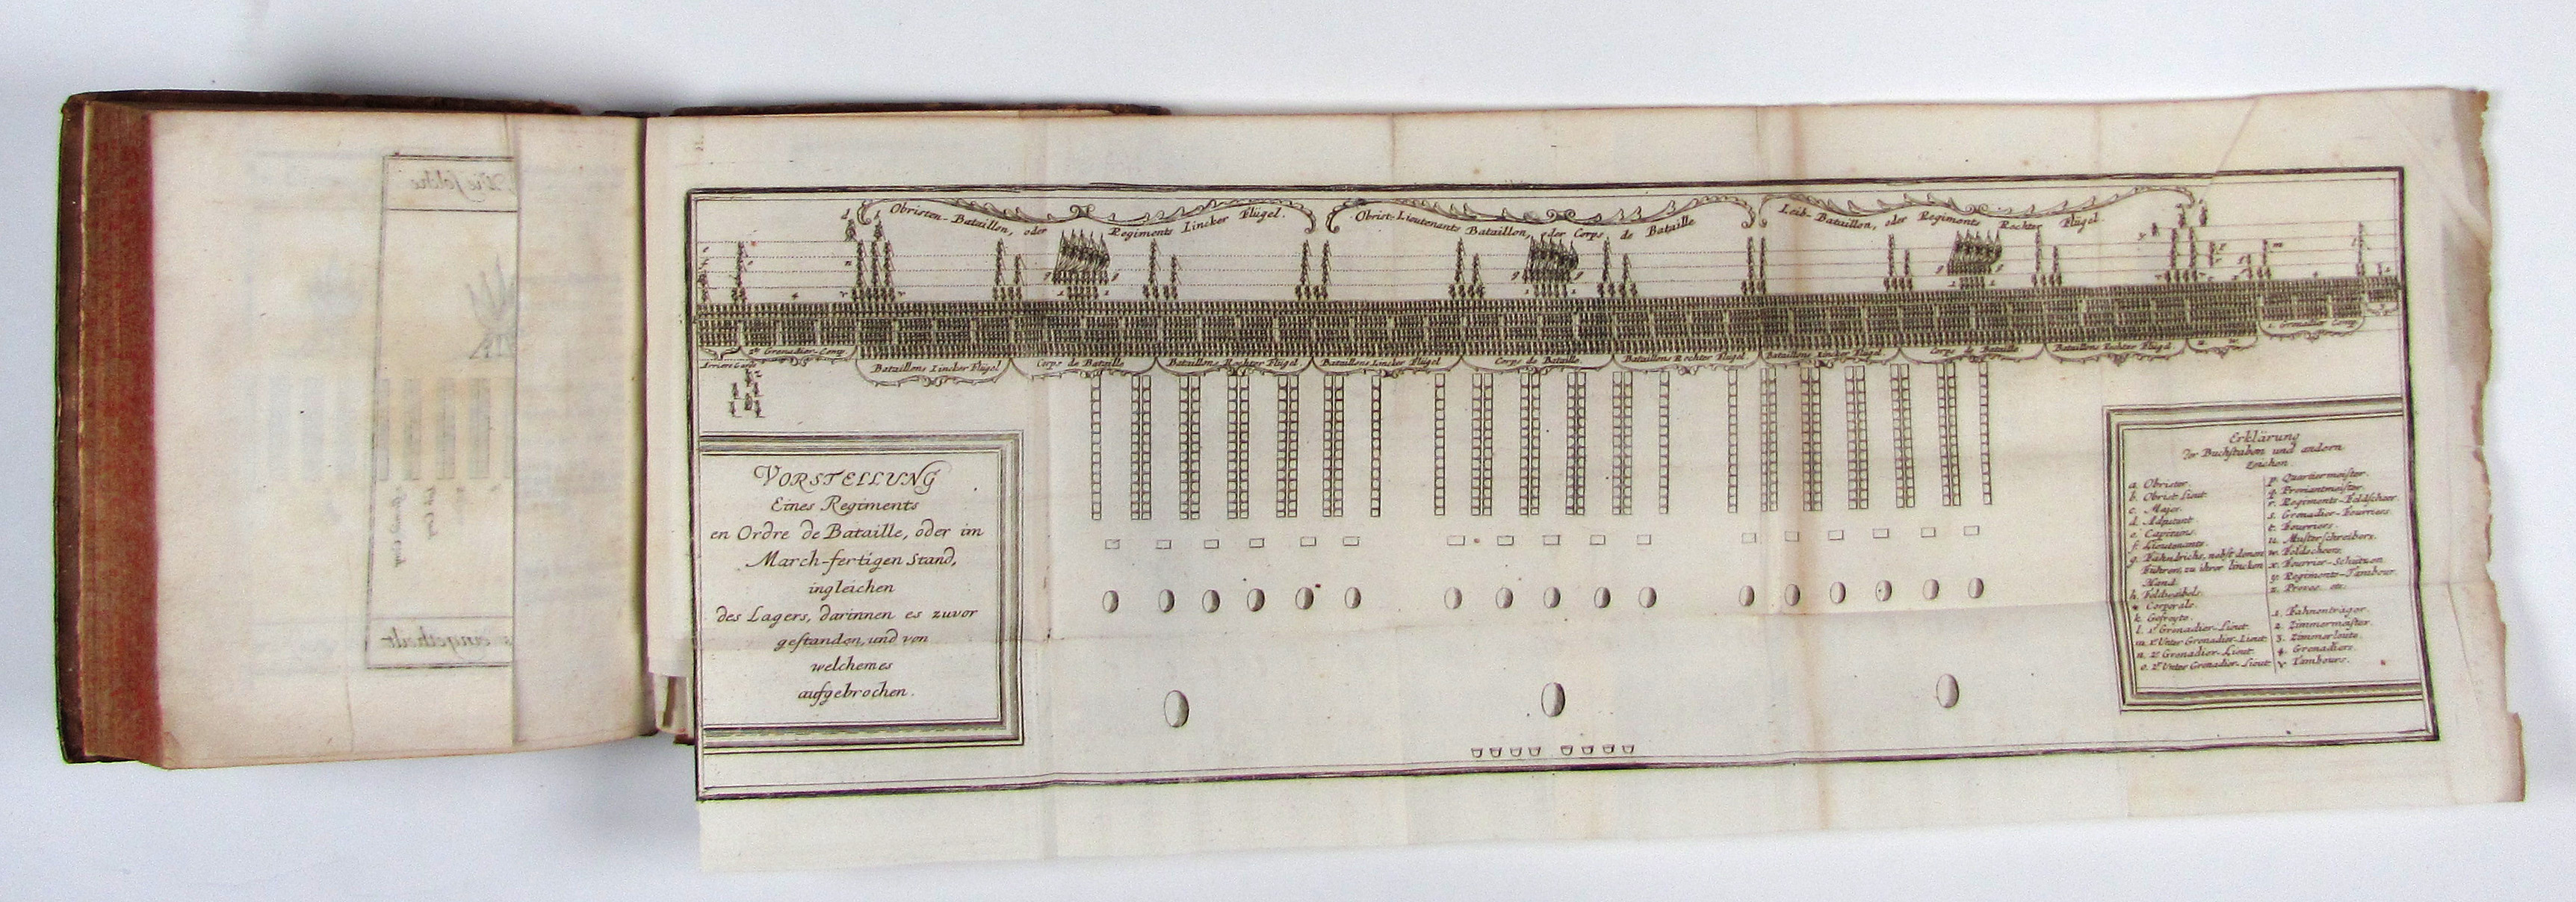 Obristen-Bataillon, oder Regiments Lincker Flügel.
Obrist-Lieutenants Bataillon, oder Corps de Bataille
Leib-Bataillon, oder Regiments Rechter Flügel.
Arriere Garde
2te Grenadier-Comp.
Bataillons Lincker Flügel
Corps de Bataille
Bataillons Rechter Flügel
Bataillons Lincker Flügel
Corps de Bataille
Bataillons Rechter Flügel
Bataillons Lincker Flügel
Corps de Bataille
Bataillons Rechter Flügel
1. Grenadier Comp.
VORSTELLUNG
Eines Regiments
en Ordre de Bataille, oder im
March-fertigen Stand,
ingleichen
des Lagers, darinnen es zuvor
gestanden, und von
welchem es
aufgebrochen.
Erklärung
Der Buchstaben und andern
Zeichen
a. Obrister.
b. Obrist-Lieut.
c. Major.
d. Adjutant.
e. Capitains.
f. Lieutenants.
g. Fähndrichs, nebst denen
Führern, zu ihrer lincken
Hand.
h. Feldweibels.
* Corporals.
k. Gefreyte.
l. 1r Grenadier-Lieut.
m. 1r Unter Grenadier-Lieut.
n. 2r Grenadier-Lieut.
o. 2r Unter Grenadier-Lieut.
p. Quartiermeister.
q. Proviantmeister.
r. Regiments-Feldscheer.
s. Grenadier-Fourriers.
t. Fourriers.
u. Musterschreibers.
w. Feldscheers.
x. Fourrier-Schützen.
y. Regiments-Tambour.
z. Profos etc.
1. Fahnenträger.
2. Zimmermeister.
3. Zimmerleute.
+ Grenadiers.
v Tambours.